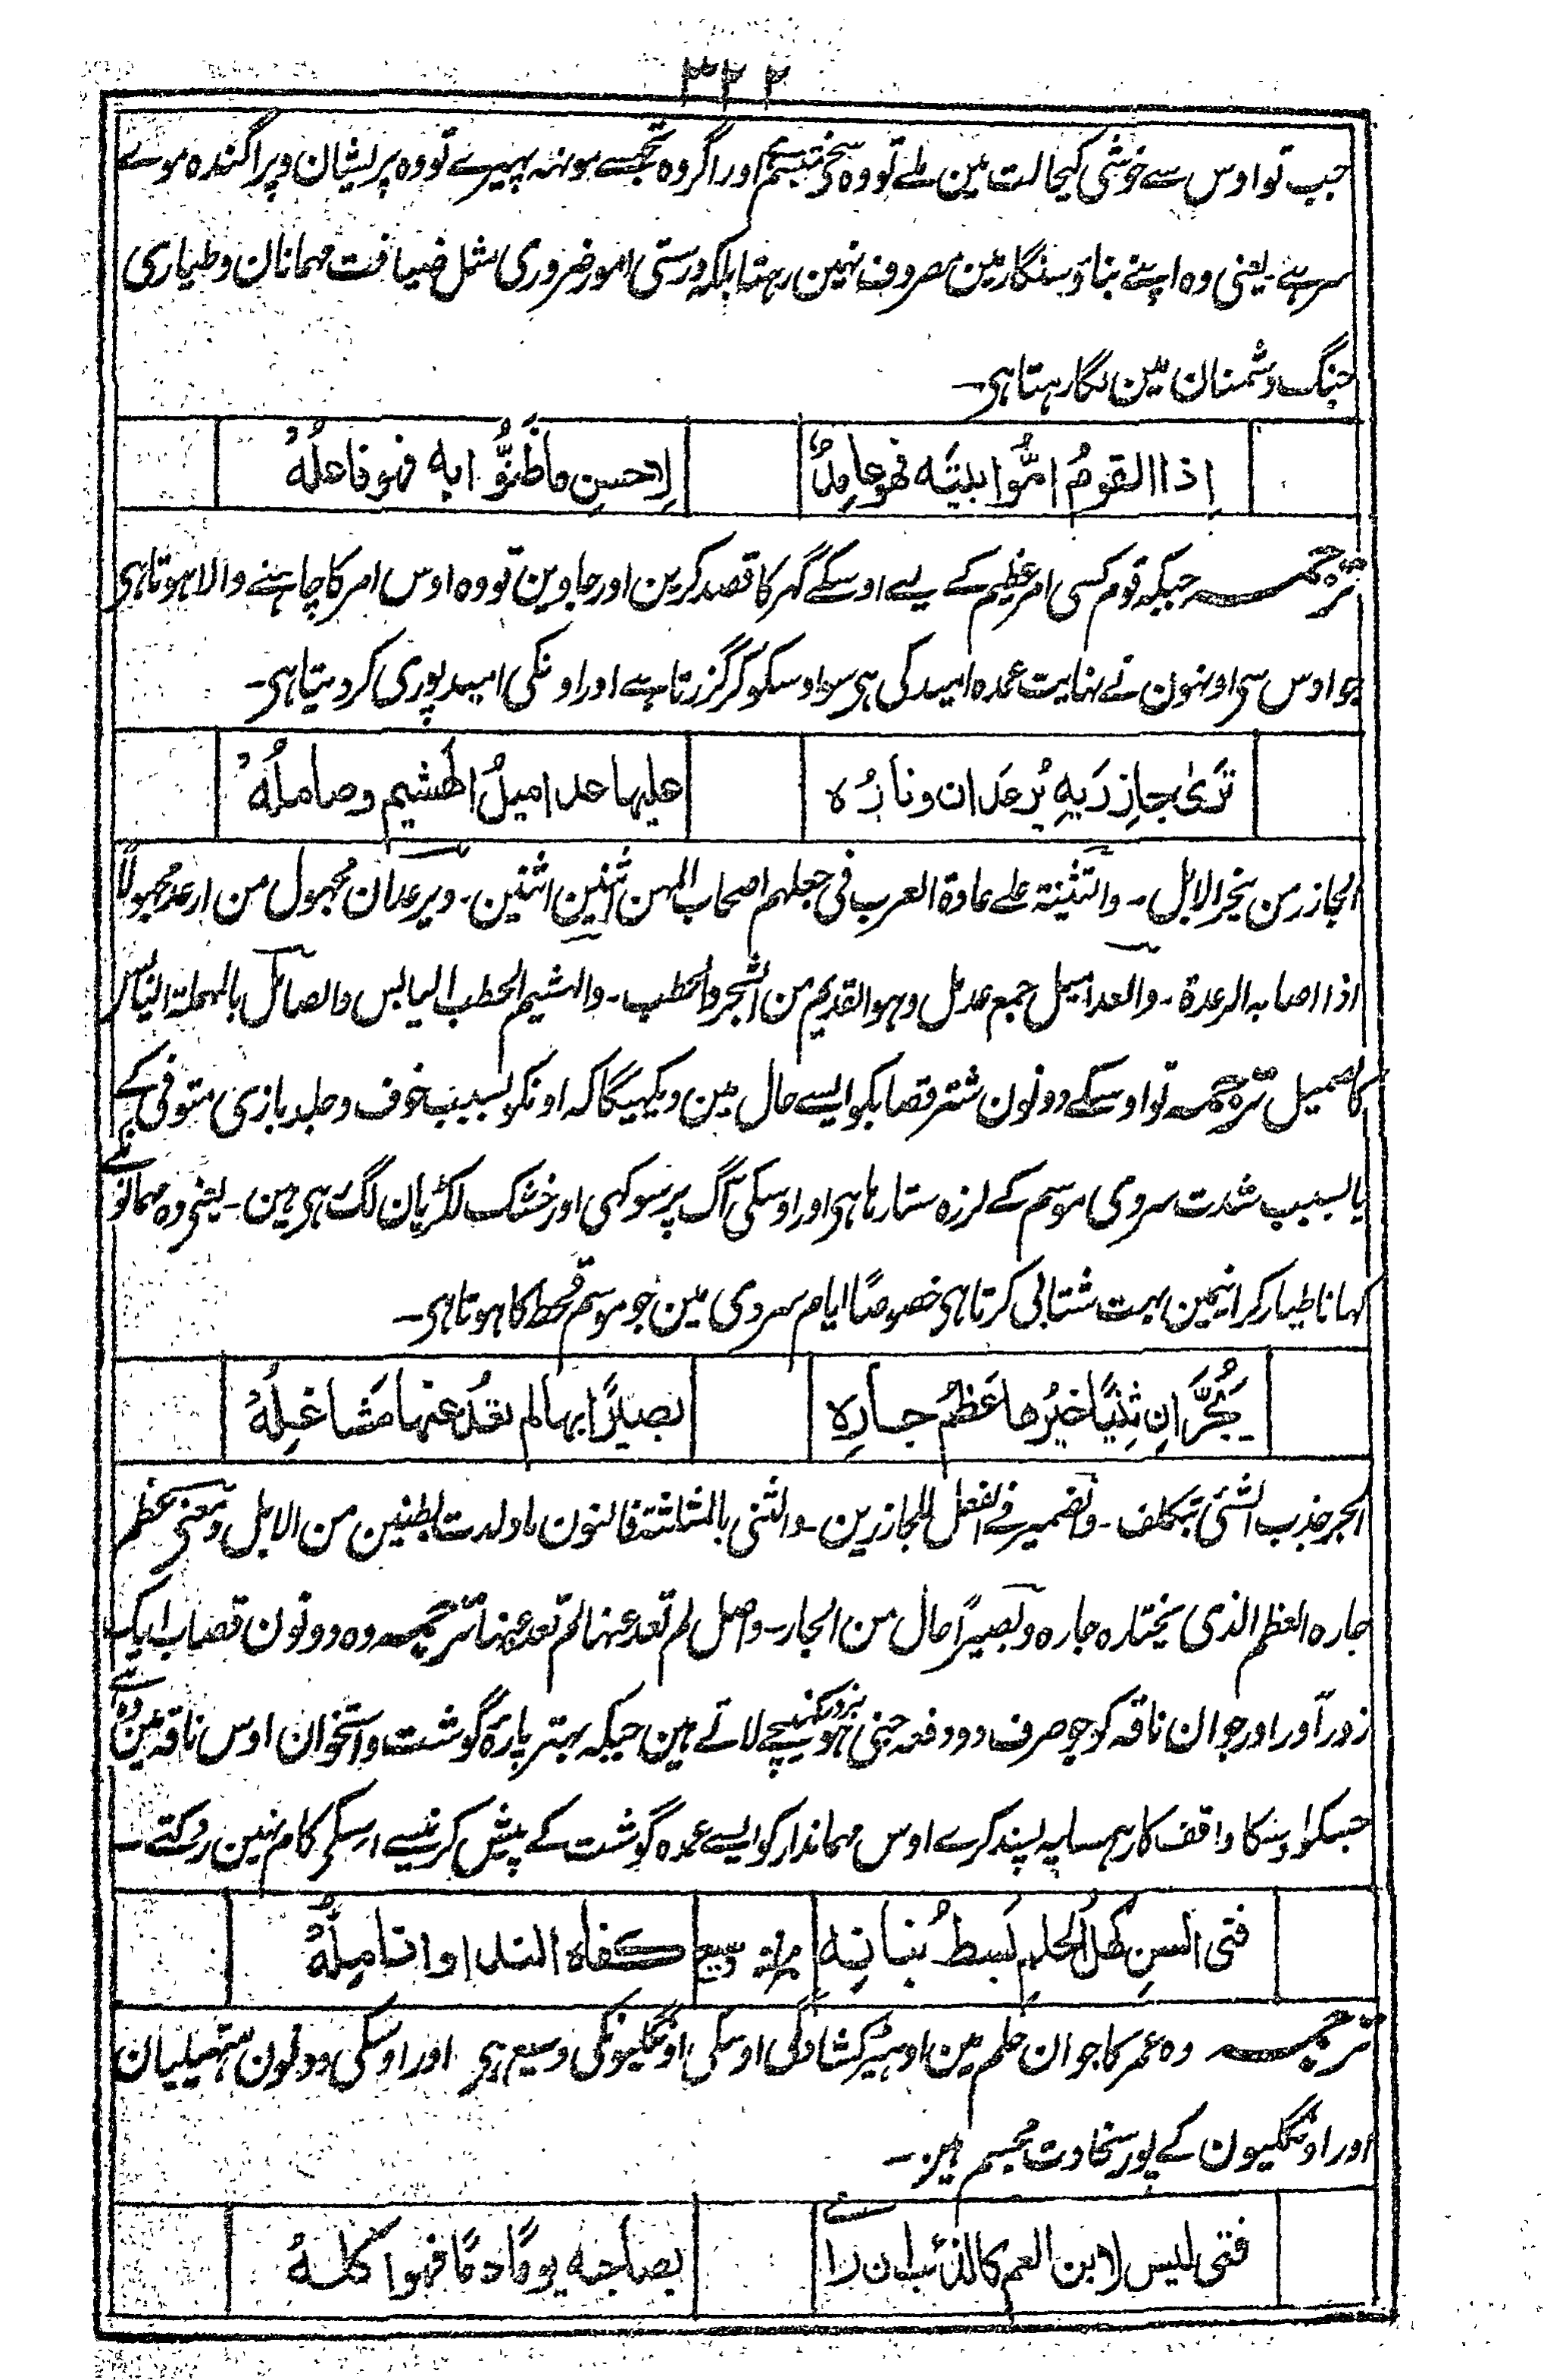 ۳۳۲
جب تو اوس سے خوشی کیحالت مین ملے تو وہ سخی متبسم ہے اور اگر وہ تجھسے مونہہ پہیرے تو وہ پریشان و پراگندہ موے
سر ہے۔ یعنی وہ اپنے بناؤ سنگار مین مصروف نہین رہتا بلکہ درستی امور ضروری مثل ضیافت مہمانان و طیاری
جنگ دشمنان مین لگا رہتا ہی۔
اِذا القومُ امُّوا بیتَه فهو عامِدٌ لِاحسنِ ماظنُّوا به فهو فاعلُهُ
ترجمہ جبکہ قوم کسی امر عظیم کے لیے اوسکے گہر کا قصد کرین اور جاوین تو وہ اوس امر کا چاہنے والا ہوتا ہی
جو اوس سی اونہون نے نہایت عمدہ امید کی ہی سو اوسکو کر گزرتا ہے اور اونکی امید پوری کر دیتا ہی۔
تَرىٰ جازِرَيهِ يُرعَدان ونارُه عليها عداميلُ الهشيم وصاملُهُ
الجازر من ینحر الابل۔ والتثنیۃ علے عادۃ العرب فی جعلہم اصحاب المہن اثنین اثنین۔ ویرعدان مجہول من ارعد مجہولًا
اذا اصابہ الرعدۃ۔ والعدامیل جمع عدمل وہو القدیم من الشجر والحطب۔ والہشیم الحطب الیابس والصامل بالمہملۃ الیابس
کالصمیل ترجمہ تو اوسکے دونون شتر قصابکو ایسے حال مین دیکہیگا کہ اونکو بسبب خوف و جلد بازی متوفی کے
یا بسبب شدت سردی موسم کے لرزہ ستا رہا ہی اور اوسکی آگ پر سوکہی اور خشک لکڑیان لگ رہی ہین۔ یعنی وہ مہمانونکے
کہانا طیار کرانیمین بہت شتابی کرتا ہی خصوصًا ایام سردی مین جو موسم قحط کا ہوتا ہی۔
يَجُرَّانِ ثِنيًا خيرُها عَظمُ جارِه بصيرًا بها لم تعدُ عنها مَشاغِلُهُ
الجر جذب الشئی بتکلف۔ والضمیر فے الفعل للجازرین۔ والثنی بالمثلثۃ فالنون ما ولدت بطنین من الابل ومعنی عظم
جارہ العظم الذی یختارہ جارہ وبصیرًا حال من الجار۔ واصل لم تعد عنہا لم تعد عنہا ترجمہ وہ دونون قصاب ایک
زور آور اور جوان ناقہ کو جو صرف دو دفعہ جنی ہو بزور کہینچے لاتے ہین جبکہ بہتر پارۂ گوشت واستخوان اوس ناقہ مین وہ ہے
جسکو اوسکا واقف کار ہمسایہ پسند کرے اوس مہماندار کو ایسے عمدہ گوشت کے پیش کرنیسے اسکی کام نہین روکتے۔
فتى السنِ كهلُ الحلمِ بَسطُ بنانِه كفاه الندا او انامِلُهُ
ترجمہ وہ عمر کا جوان حلم مین اوہیڑ کشادگی اوسکی اونگلیونکی وسیع ہی اور اوسکی دونون ہتہیلیان
اور اونگلیون کے پور سخاوت مجسم ہین۔
فتى ليس لابن العم كالذئب ان رأى بصاحبه يومًا دمًا فهو آكلُهُ